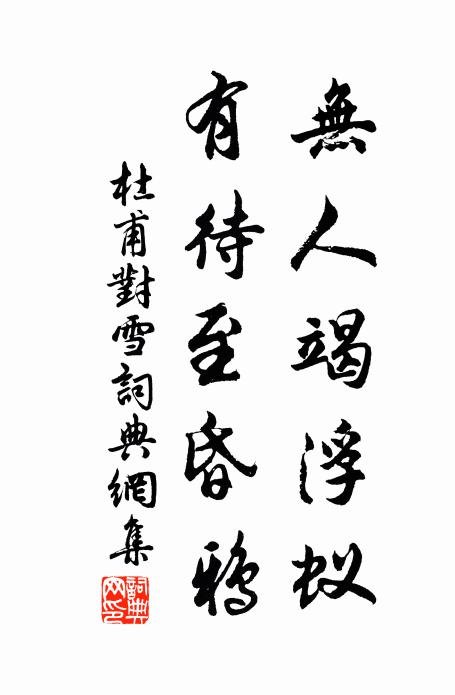 無人竭浮蚁
有待至昏鴉
杜甫對雪詞典網集
詞典
网印